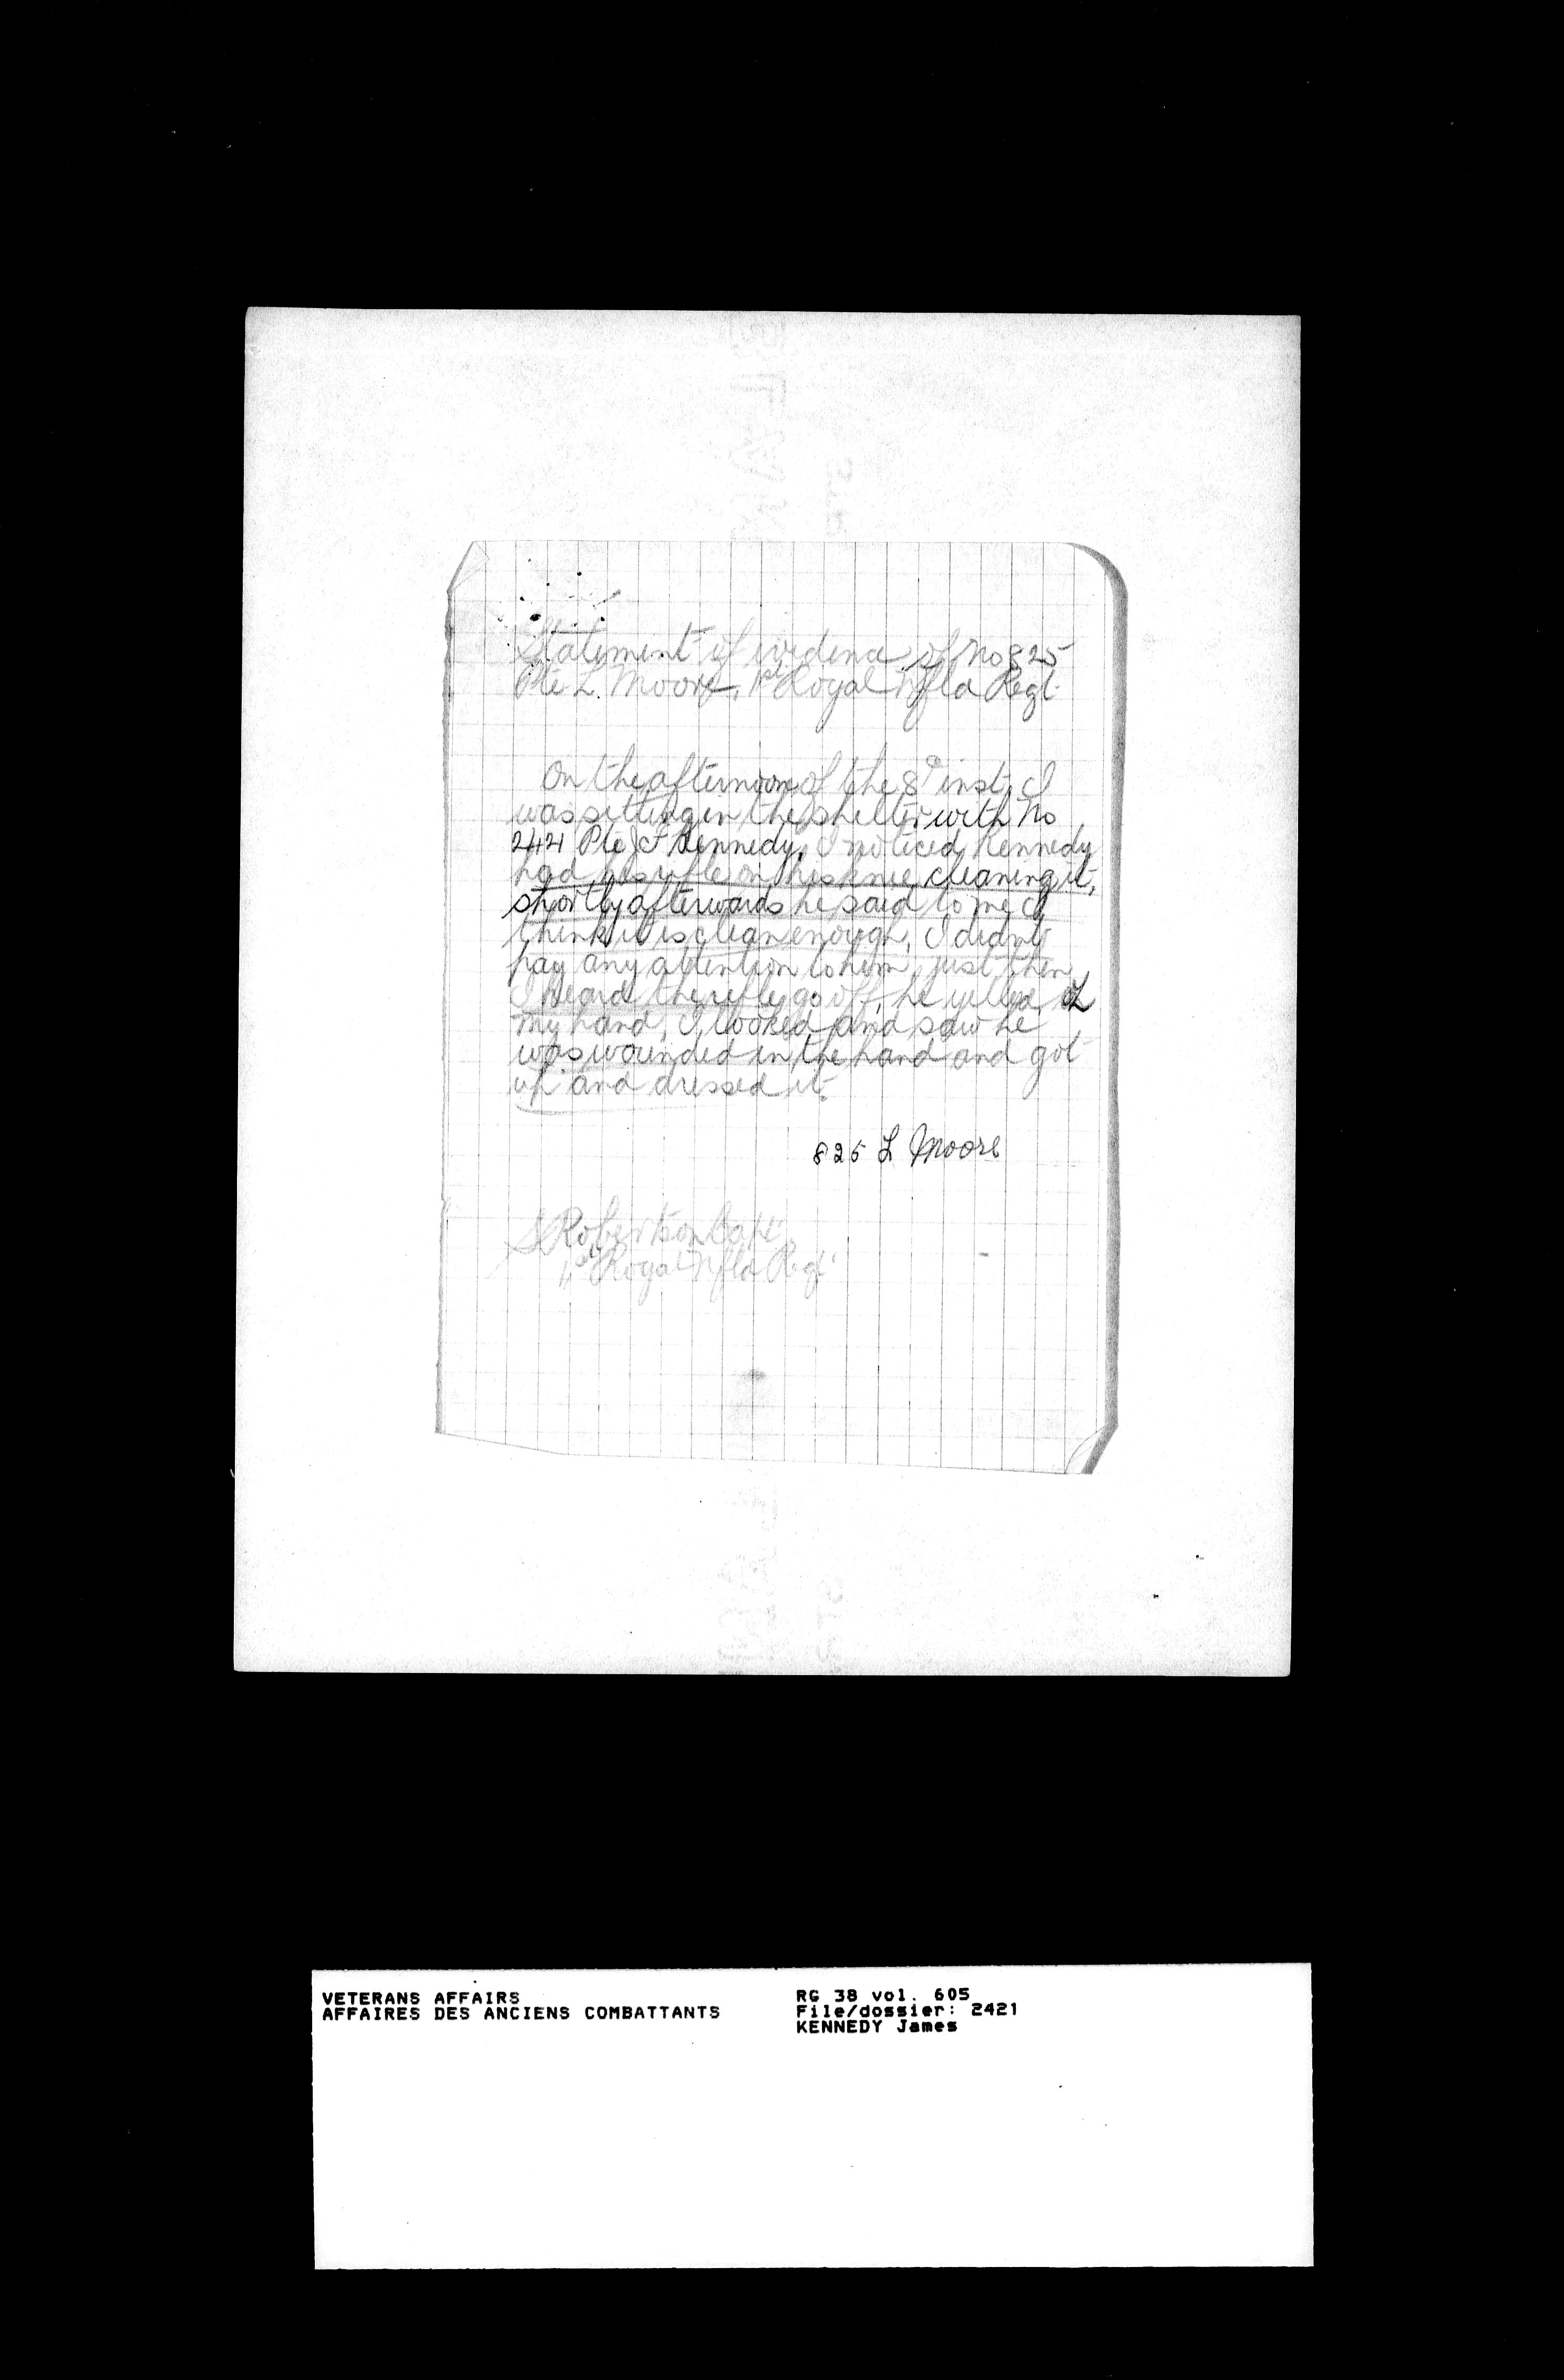 Statement of evidence of No 825
Pte L. Moore, 1st Royal Nfld Regt.
On the afternoon of the 8th inst, I
was sitting in the shelter with No
2421 Pte J F Kennedy, I noticed Kennedy
had his rifle on his knee cleaning it,
shortly afterwards he said to me I
think it is clean enough, I didn't
pay any attention to him, just then
I heard the rifle go off, he yelled
my hand, I looked and saw he
was wounded in the hand and got
up and dressed it.
825 L Moore
Robertson Capt.
1st Royal Nfld Regt
VETERANS AFFAIRS
AFFAIRES DES ANCIENS COMBATTANTS
RG 38 vol. 605
File/dossier: 2421
KENNEDY James